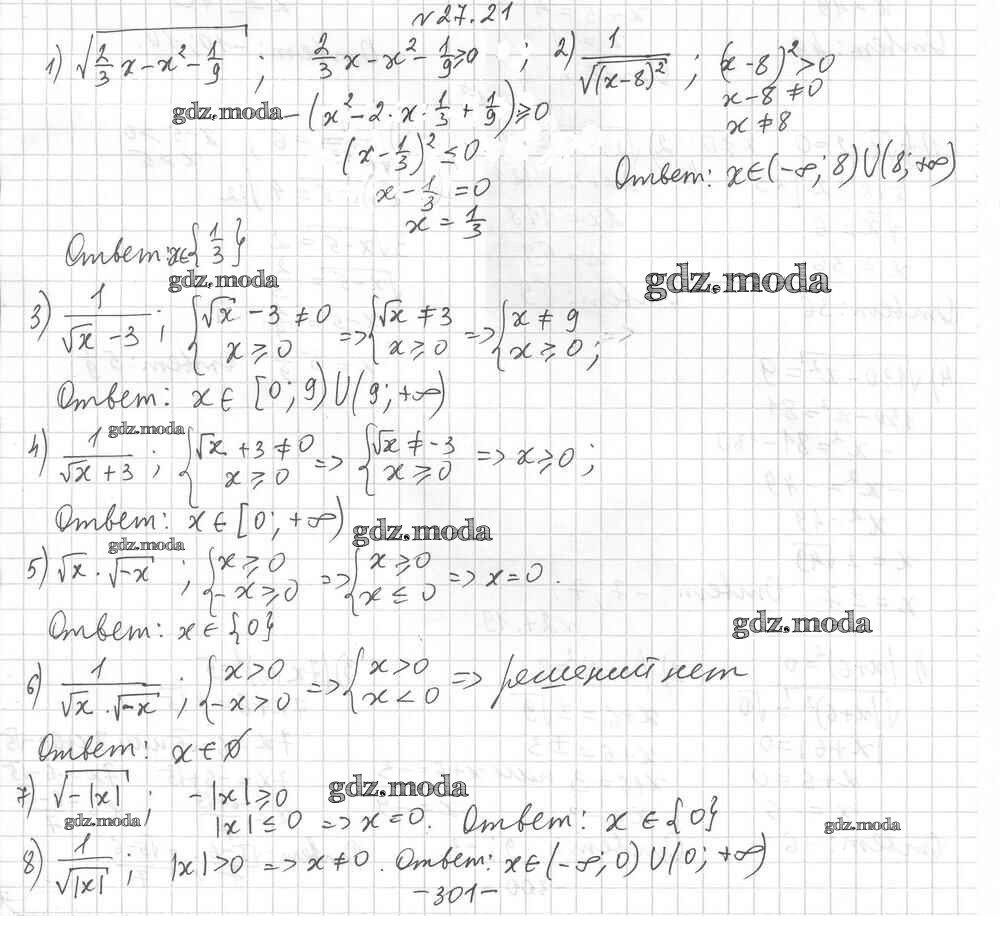 №27.21
1) √(2/3 x - x² - 1/9) ; 2/3 x - x² - 1/9 ⩾ 0 ; 2) 1/√((x-8)²) ; (x-8)² > 0
gdz.moda -(x² - 2·x·1/3 + 1/9) ⩾ 0 x-8 ≠ 0
(x - 1/3)² ≤ 0 x ≠ 8
x - 1/3 = 0 Ответ: x∈(-∞; 8)∪(8; +∞)
x = 1/3
Ответ: x∈{1/3}
gdz.moda gdz.moda
3) 1/(√x - 3) ; {√x - 3 ≠ 0 x ⩾ 0 => {√x ≠ 3 x ⩾ 0 => {x ≠ 9 x ⩾ 0 ; =>
Ответ: x∈[0; 9)∪(9; +∞)
gdz.moda
4) 1/(√x + 3) ; {√x + 3 ≠ 0 x ⩾ 0 => {√x ≠ -3 x ⩾ 0 => x ⩾ 0 ;
Ответ: x∈[0; +∞) gdz.moda
gdz.moda
5) √x · √-x ; {x ⩾ 0 -x ⩾ 0 => {x ⩾ 0 x ≤ 0 => x = 0 .
Ответ: x∈{0} gdz.moda
6) 1/(√x · √-x) ; {x > 0 -x > 0 => {x > 0 x < 0 => решений нет
Ответ: x∈∅
7) √(-|x|) ; -|x| ⩾ 0 gdz.moda
gdz.moda |x| ≤ 0 => x = 0. Ответ: x∈{0} gdz.moda
8) 1/√|x| ; |x| > 0 => x ≠ 0 . Ответ: x∈(-∞; 0)∪(0; +∞)
-301-